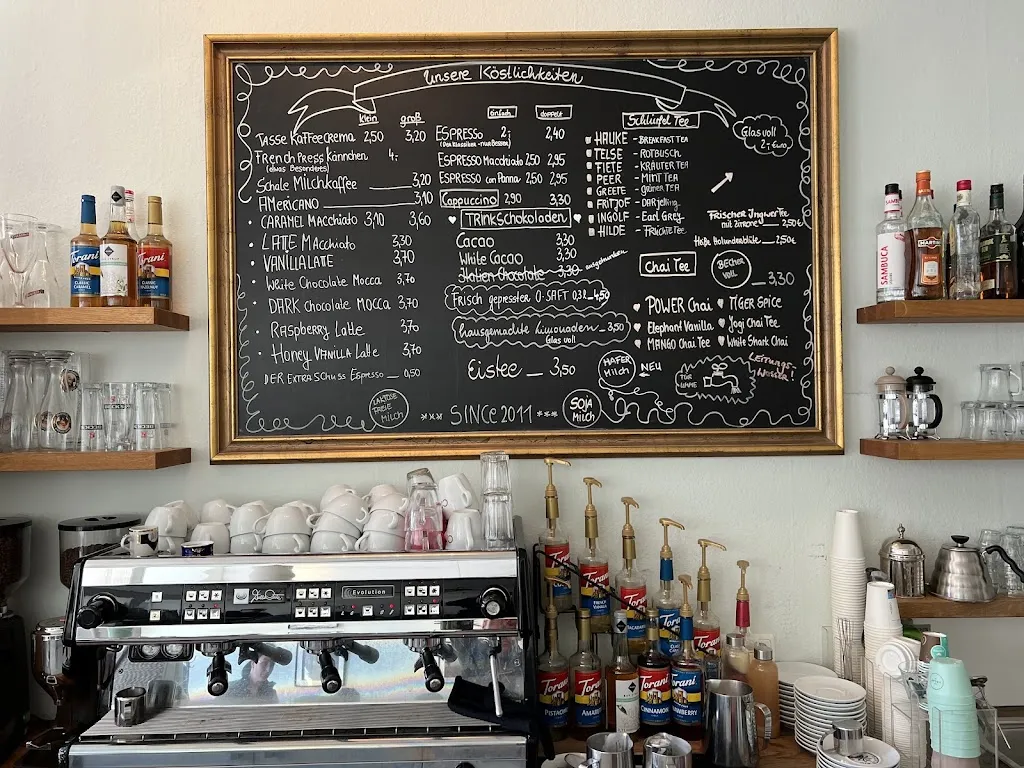 unsere Köstlichkeiten
klein groß
Tasse Kaffeecrema 2,50 3,20
French Press Kännchen 4,-
(etwas Besonderes)
Schale Milchkaffee 3,20
AMericano 3,10
• CARAMEL Macchiato 3,10 3,60
• LATTE Macchiato 3,30
• VANILLA LATE 3,70
• Weite Chocolate Mocca 3,70
• DARK Chocolate MOCCA 3,70
• Raspberry Latte 3,70
• Honey VANILLA Latte 3,70
DER EXTRA SChuss Espresso 0,50
LAKTOSE FREIE MILCH
einfach doppelt
ESPRESSO 2,- 2,40
(Der Klassiker - nur Besser)
ESPRESSO Macchiato 2,50 2,95
ESPRESSO con Panna 2,50 2,95
Cappuccino 2,90 3,30
TRINKSchokoladen
Cacao 3,30
White Cacao 3,30
Italien Chocolate 3,30 ausgetrunken
Frisch gepresster O-SAFT 0,3l 4,50
hausgemachte Limonaden 3,50
Glas voll
Eistee 3,50
*** SINCE 2011 ***
HAFER Milch
NEU
SOJA MILCH
Schlürfel Tee
HAUKE - BREAKFAST TEA
TELSE - ROTBUSCH
FIETE - KRÄUTER TEA
PEER - MINT TEA
GREETE - grüner TEA
FRITJOF - DARJeling
INGOLF - Earl Grey
HILDE - FRÜCHTE Tee
Glas voll
2,- Euro
Frischer Ingwer Tee
mit Zitrone 2,50€
Heiße Holunderblüte 2,50€
Chai Tee
BECHER VOLL
3,30
POWER Chai TIGER SPICE
Elephant Vanilla Yogi Chai Tee
MANGO Chai Tee White Shark Chai
FÜR UMME
Leitungs-
Wasser!
Torani
Torani
SAMBUCA
MARTINI
Evolution
Torani
Torani
Torani
Torani
Torani
Torani
PISTACHIO
Torani
Torani
CINNAMON
Torani